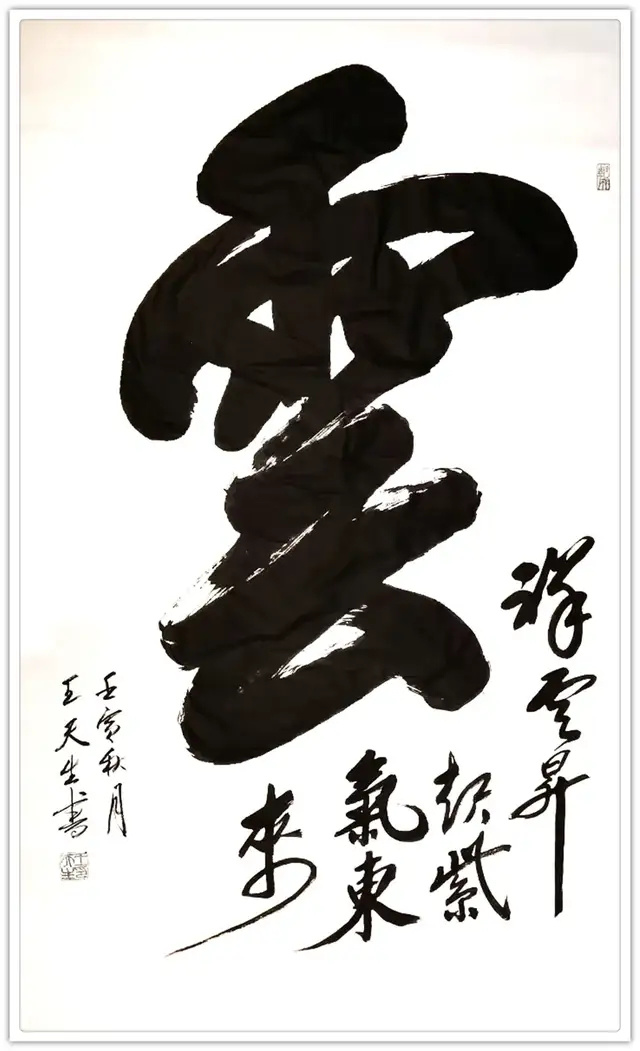 雲
祥雲昇
起紫
氣東
來
壬寅秋月
王天生書